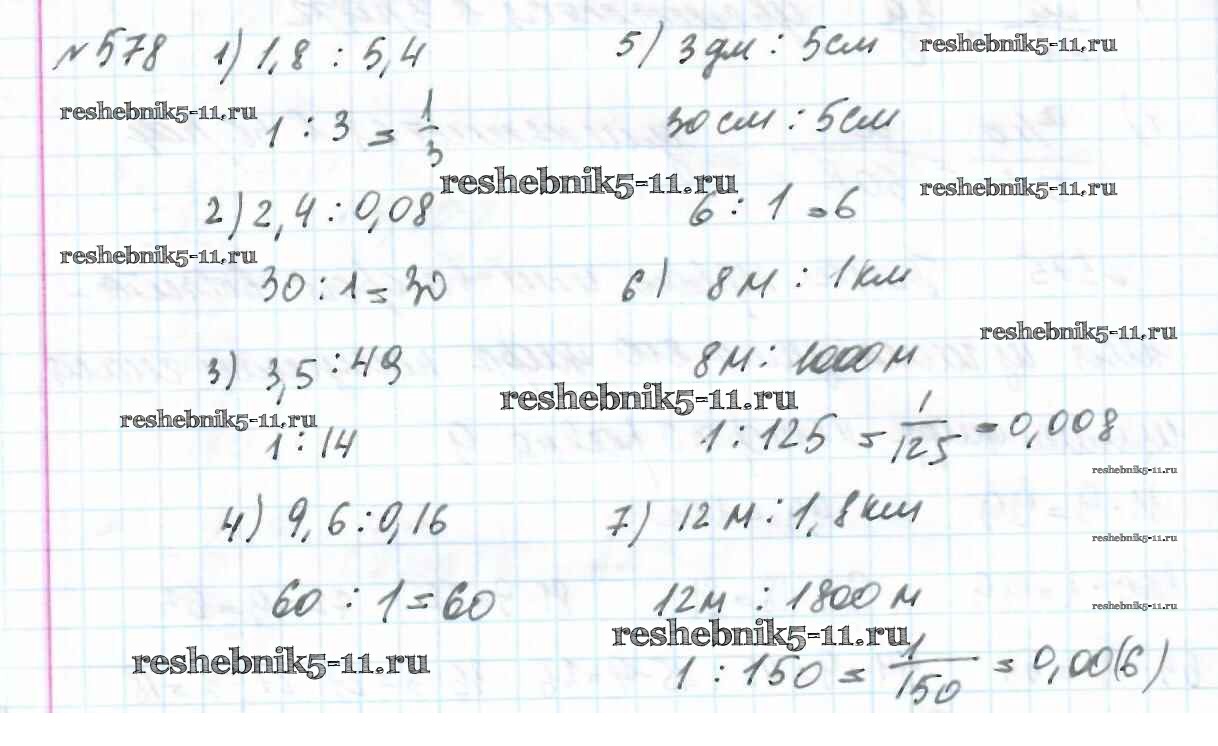 №578 1) 1,8 : 5,4
1 : 3 = 1/3
2) 2,4 : 0,08
30 : 1 = 30
3) 3,5 : 49
1 : 14
4) 9,6 : 0,16
60 : 1 = 60
5) 3 дм : 5 см
30 см : 5 см
6 : 1 = 6
6) 8 м : 1 км
8 м : 1000 м
1 : 125 = 1/125 = 0,008
7) 12 м : 1,8 км
12 м : 1800 м
1 : 150 = 1/150 = 0,00(6)
reshebnik5-11.ru
reshebnik5-11.ru
reshebnik5-11.ru
reshebnik5-11.ru
reshebnik5-11.ru
reshebnik5-11.ru
reshebnik5-11.ru
reshebnik5-11.ru
reshebnik5-11.ru
reshebnik5-11.ru
reshebnik5-11.ru
reshebnik5-11.ru
reshebnik5-11.ru